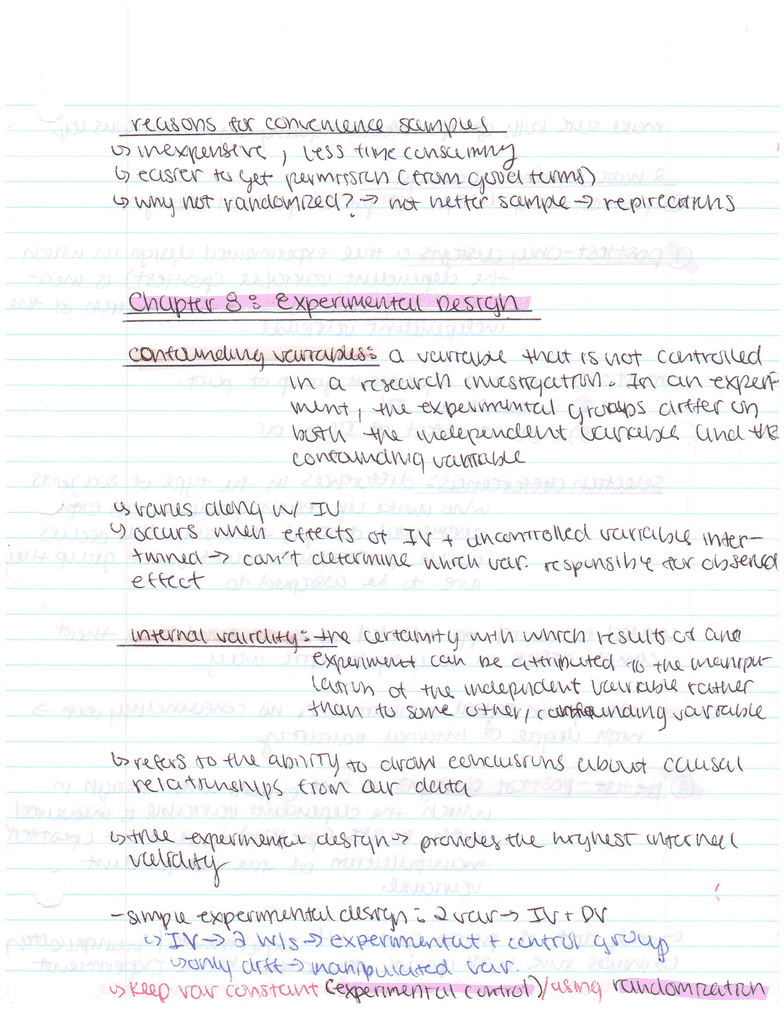 reasons for convenience samples
↳ inexpensive, less time consuming
↳ easier to get permission (from good terms)
↳ why not randomized? → not better sample → replications
Chapter 8: Experimental Design
confounding variables: a variable that is not controlled
in a research investigation. In an experi-
ment, the experimental groups differ on
both the independent variable and the
confounding variable
↳ varies along w/ IV
↳ occurs when effects of IV + uncontrolled variable inter-
twined → can't determine which var. responsible for observed
effect
internal validity: the certainty with which results of and
experiment can be attributed to the manipu-
lation of the independent variable rather
than to some other, confounding variable
↳ refers to the ability to draw conclusions about causal
relationships from our data
↳ true experimental design → provides the highest internal
validity
- simple experimental design: 2 var → IV + DV
↳ IV → 2 lvls → experimental + control group
↳ only diff → manipulated var.
↳ keep var constant (experimental control)/using randomization